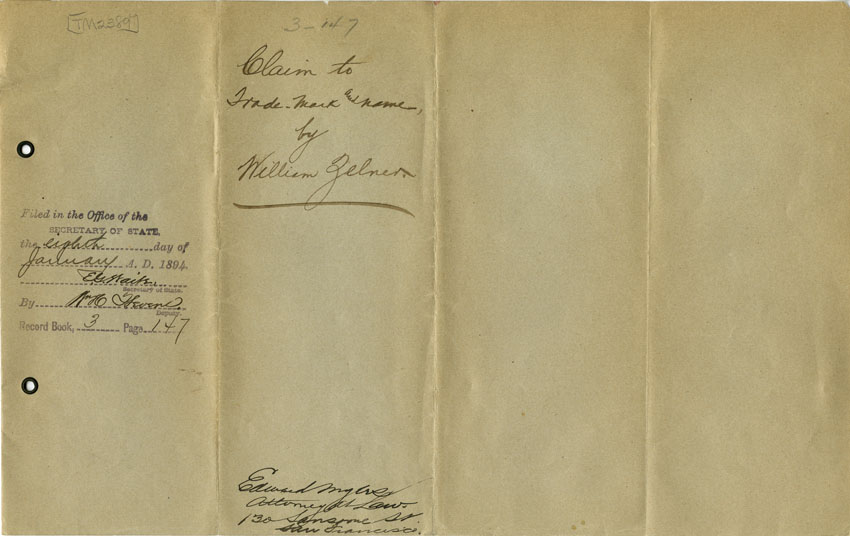 [TM2389]
3-147
Claim to
Trade-Mark and name,
by
William Zelner
Filed in the Office of the
SECRETARY OF STATE,
the eighth day of
January A. D. 1894.
E G Waite
Secretary of State.
By
Deputy.
Record Book, 3 Page 147
Edward Myers
Attorney at Law.
130 Sansome St
San Francisco.